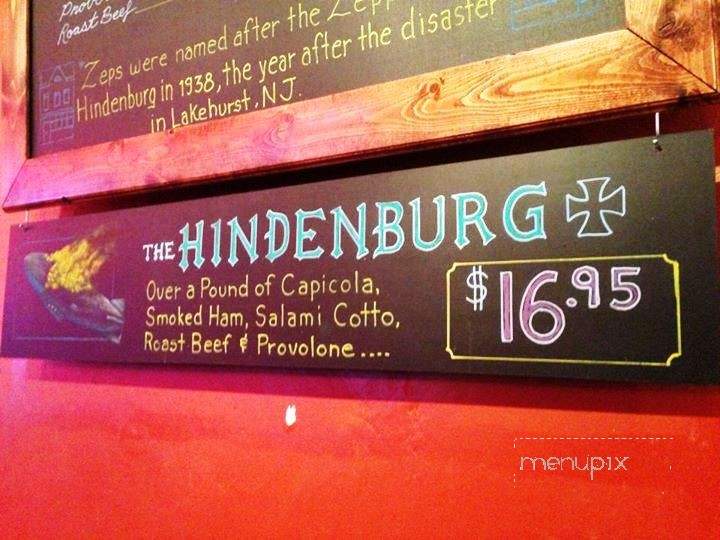 Roast Beef
Zeps were named after the Zepp
Hindenburg in 1938, the year after the disaster
in Lakehurst, N.J.
THE HINDENBURG
Over a Pound of Capicola,
Smoked Ham, Salami Cotto,
Roast Beef & Provolone....
$16.95
menupix